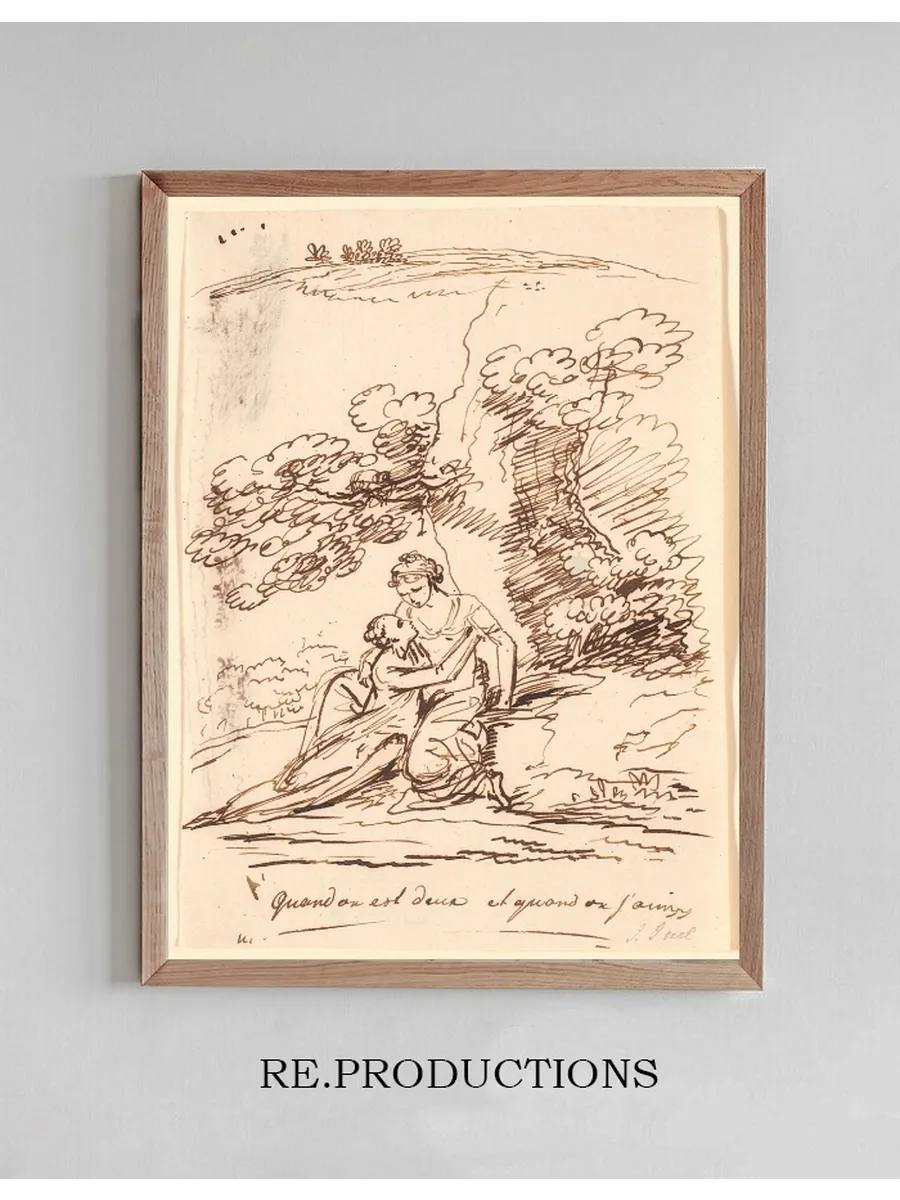 Quand on est deux et quand on s'aime
J. Juel
RE.PRODUCTIONS